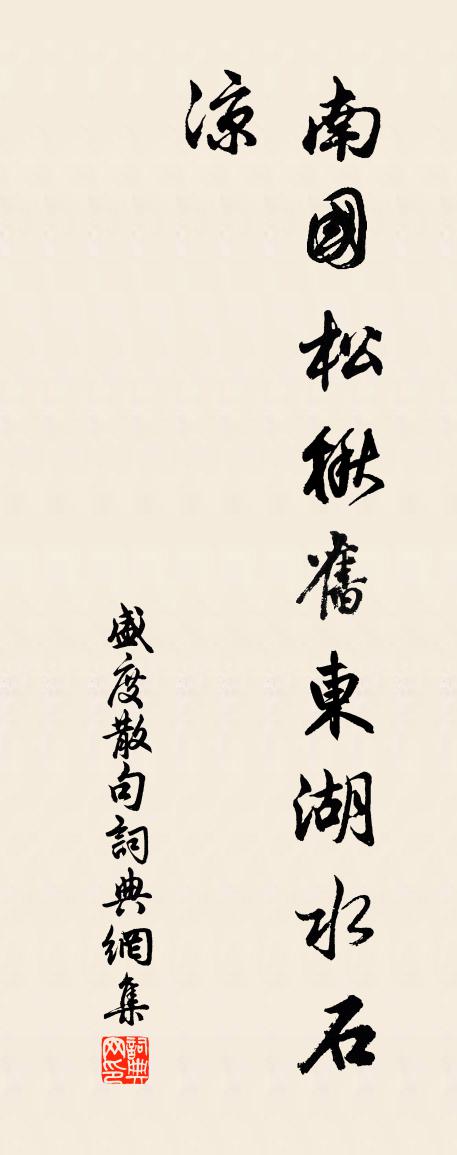 南國松楸舊東湖水石
涼
盛度散句詞典網集
詞典
网印